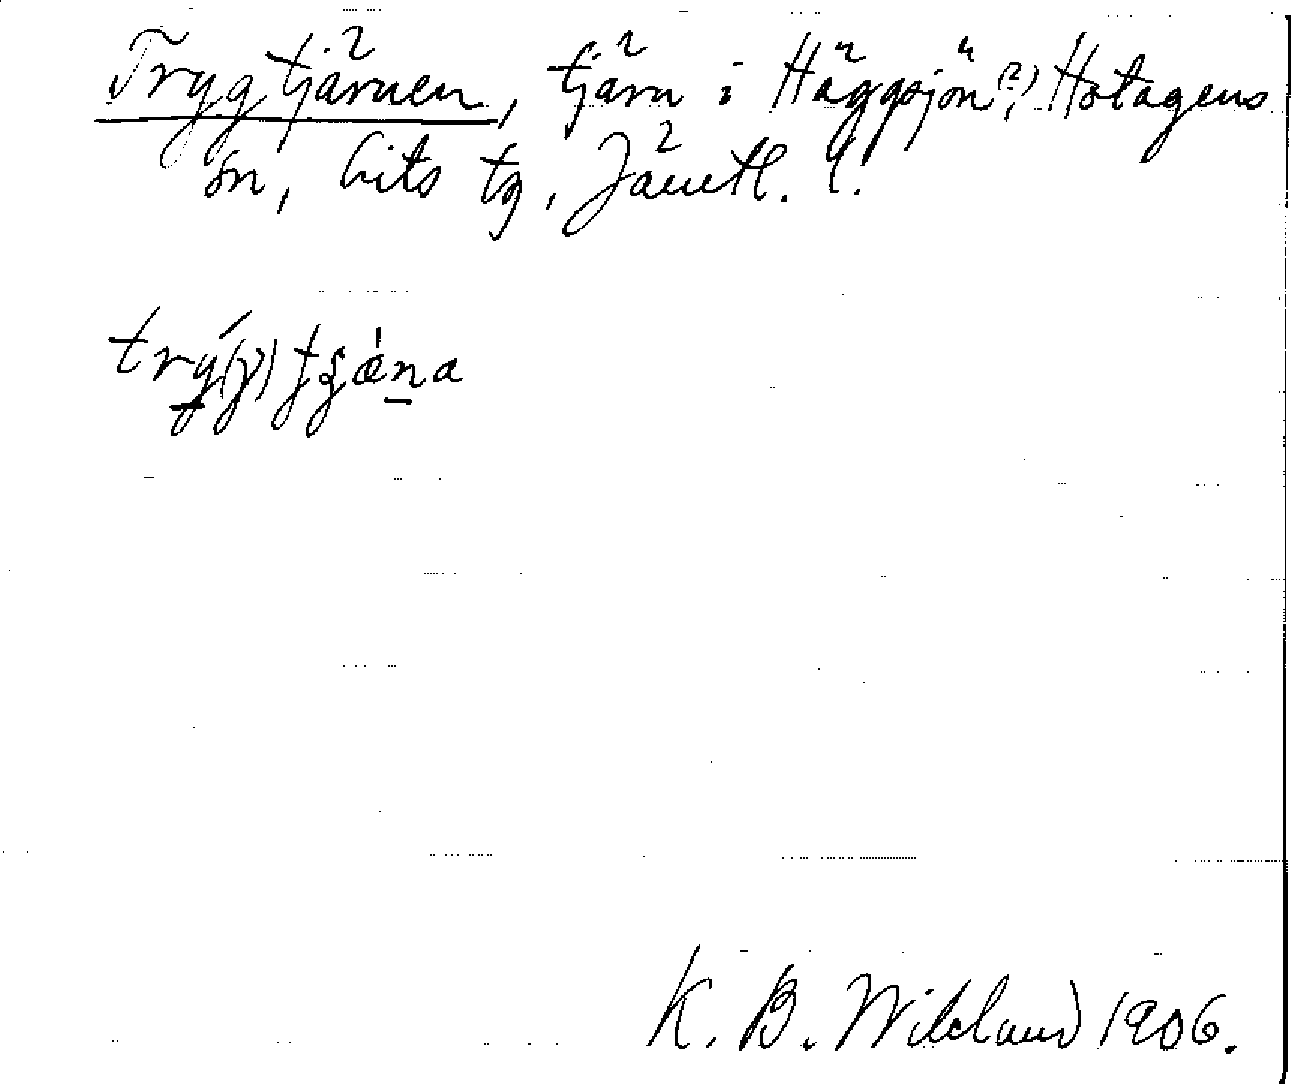 Trygtjärnen, tjärn i Häggsjön(?), Hotagens
sn, Lits tg, Jämtl. l.
trý(y)
K. B. Wiklund 1906.